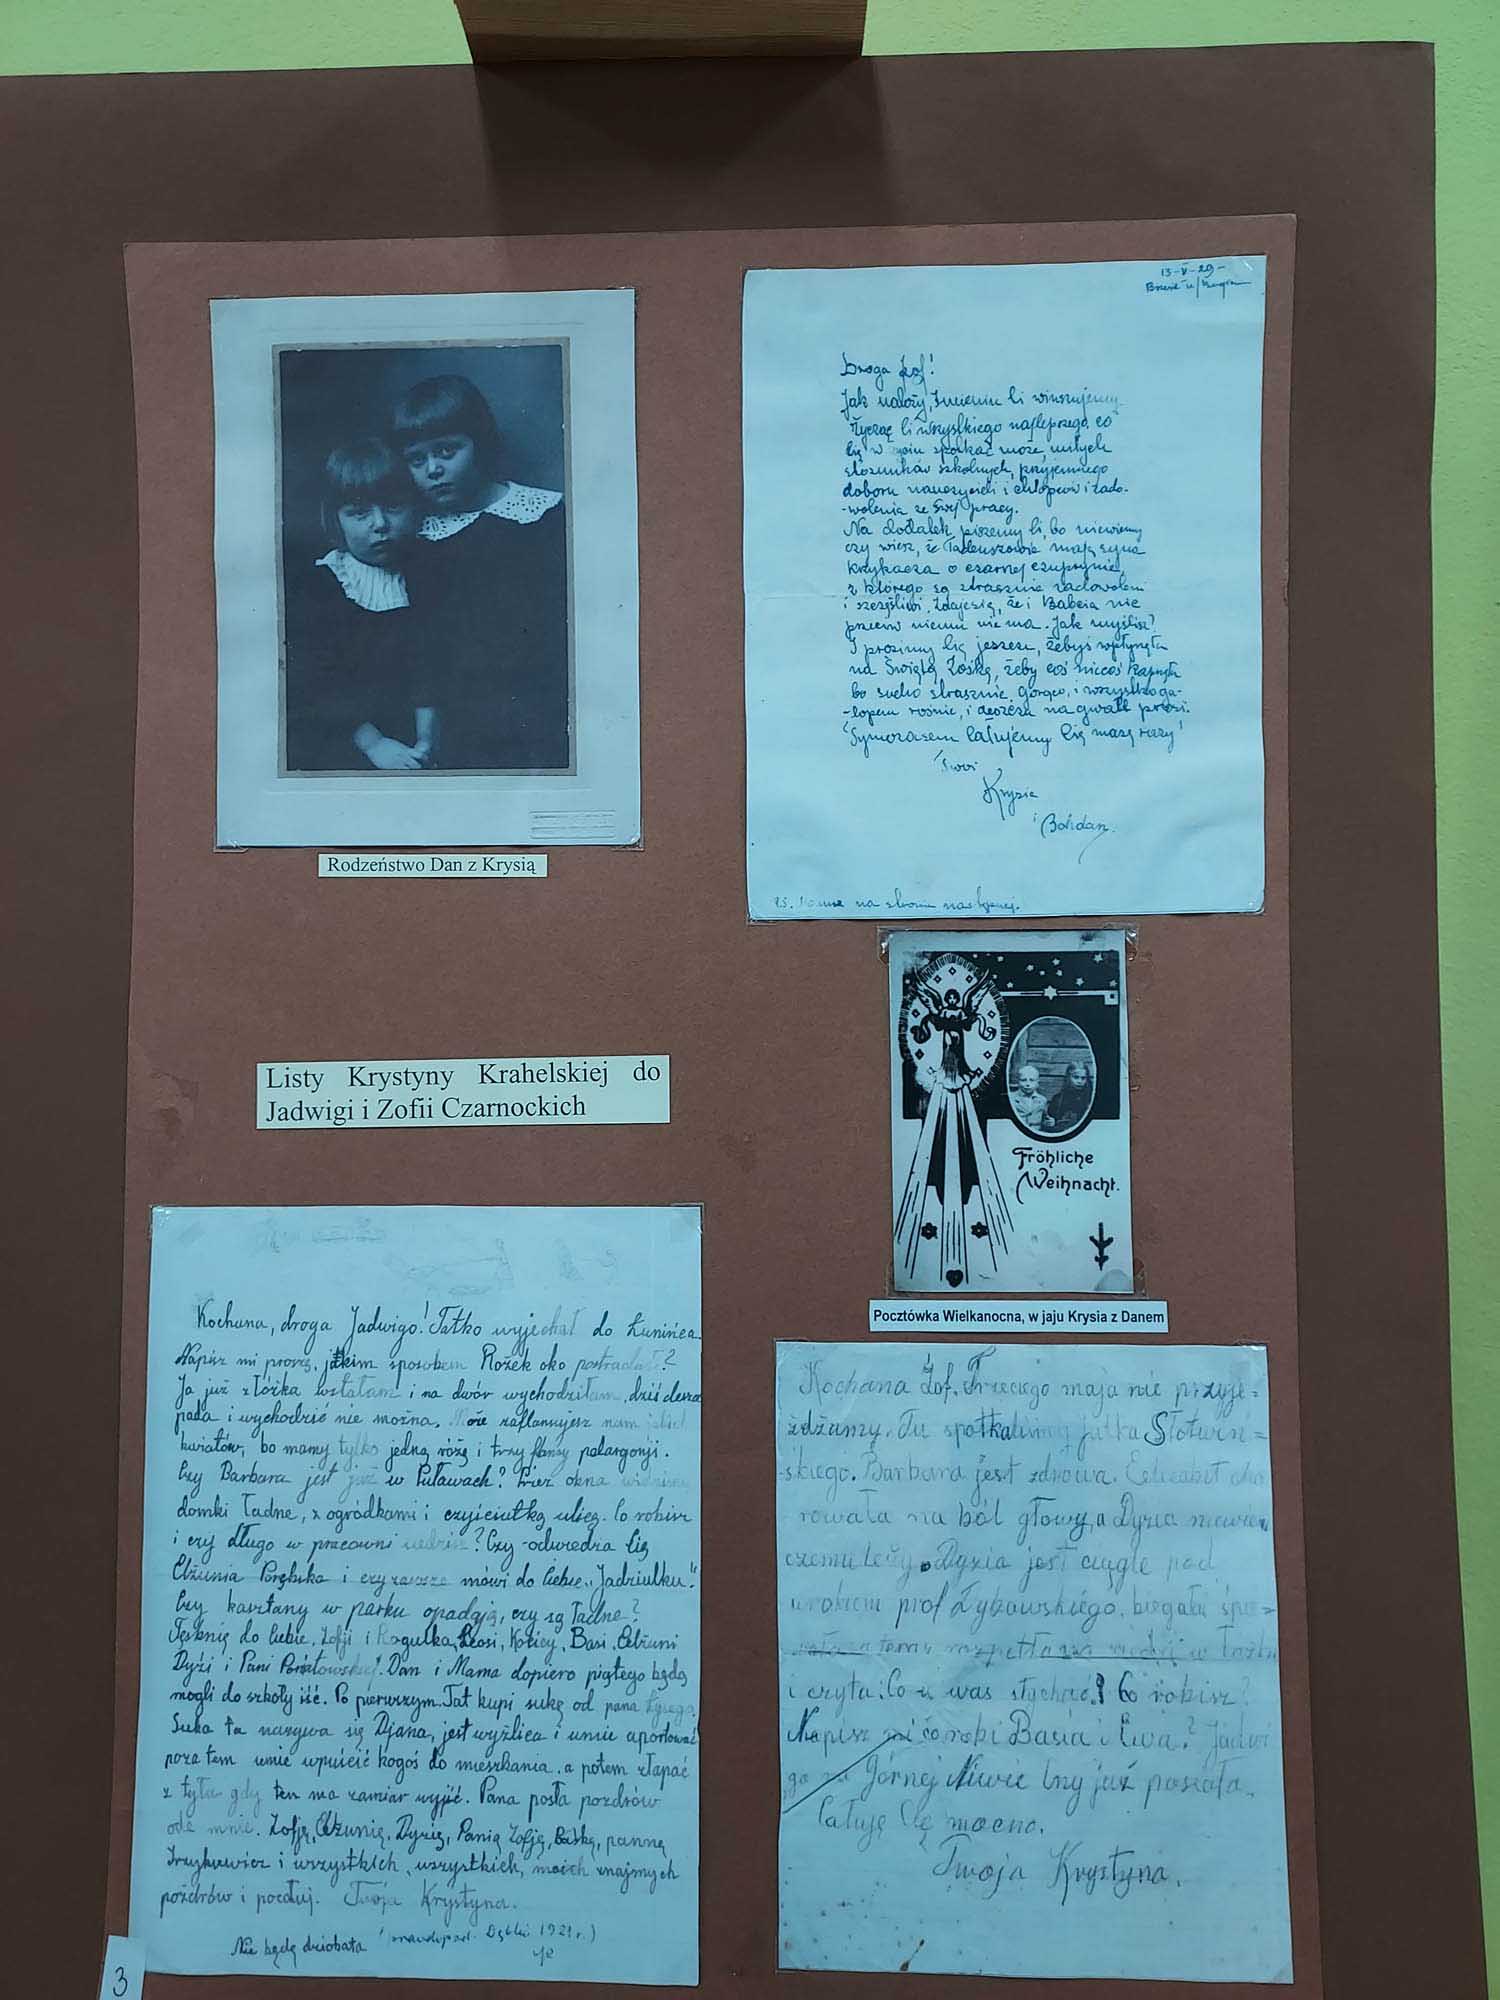 Rodzeństwo Dan z Krysią
13-V-29-
Droga Zof!
Jak należy, Imienin Ci winszujemy
Życząc Ci wszystkiego najlepszego, co
Cię w życiu spotkać może, miłych
stosunków szkolnych, przyjemnego
doboru nauczycieli i chłopców i zado-
-wolenia ze Swej pracy.
Na dodatek piszemy Ci, bo niewiemy
czy wiesz, że Tadeuszowie mają syna
krzykacza o czarnej czuprynie,
z którego są strasznie zadowoleni
i szczęśliwi. Zdajesię, że i Babcia nie
przeciw niemu nie ma. Jak myślisz?
I prosimy Cię jeszcze, żebyś wpłynęła
na Świętą Zośkę, żeby coś niecoś kapnęła
bo sucho strasznie, gorąco, i wszystko ga-
-lopem rośnie, i deszcza na gwałt prosi.
Tymczasem całujemy Cię masę razy!
Twoi
Krysia
i Bohdan.
P.S. Mama na stronie następnej.
Listy Krystyny Krahelskiej do
Jadwigi i Zofii Czarnockich
Fröhliche
Weihnacht.
Pocztówka Wielkanocna, w jaju Krysia z Danem
Kochana, droga Jadwigo! Tatko wyjechał do Łunińca.
Napisz mi proszę, jakim sposobem Rożek oko postradał?
Ja już z łóżka wstałam i na dwór wychodziłam, dziś deszcz
pada i wychodzić nie można. Może zaflansujesz nam jakich
kwiatów, bo mamy tylko jedną różę i trzy flansy palargonji.
Czy Barbara jest już w Puławach? Przez okna widzimy
domki ładne, z ogródkami i czyściutką ulicę. Co robisz
i czy długo w pracowni siedzisz? Czy odwiedza Cię
Elżunia Porębska i czy zawsze mówi do Ciebie „Jadziulku."
Czy kasztany w parku opadają, czy są ładne?
Tęsknię do Ciebie, Zofji i Rogulka, Leosi, Kociey, Basi, Elżuni
Dyzi i Pani Poniatowskiej. Dan i Mama dopiero piątego będą
mogli do szkoły iść. Po pierwszym Tat kupi sukę od pana
Suka ta nazywa się Djana, jest wyżlica i umie aportować
poza tem umie wpuścić kogoś do mieszkania, a potem złapać
z tyłu gdy ten ma zamiar wyjść. Pana posła pozdrów
ode mnie. Zofję, Elżunię, Dyzię, Panią Zofję, Baśkę, pannę
i wszystkich, wszystkich, moich znajmych
pozdrów i pocałuj. Twoja Krystyna.
Nie będę dziobata
1921 r.)
3
Kochana Zof. Trzeciego maja nie przyje=
żdżamy. Tu spotkaliśmy Słotwiń=
skiego. Barbara jest zdrowa. cho
rowała na ból głowy, a Dyzia niewiem
czemu leży. Dyzia jest ciągle pod
urokiem prof Łybowskiego,
w łóżku
i czyta. Co u was słychać? Co robisz?
Napisz mi co robi Basia i Ewa? Jadwi
ga na Górnej Niwie Czy już posiała.
Całuję Cię mocno.
Twoja Krystyna.